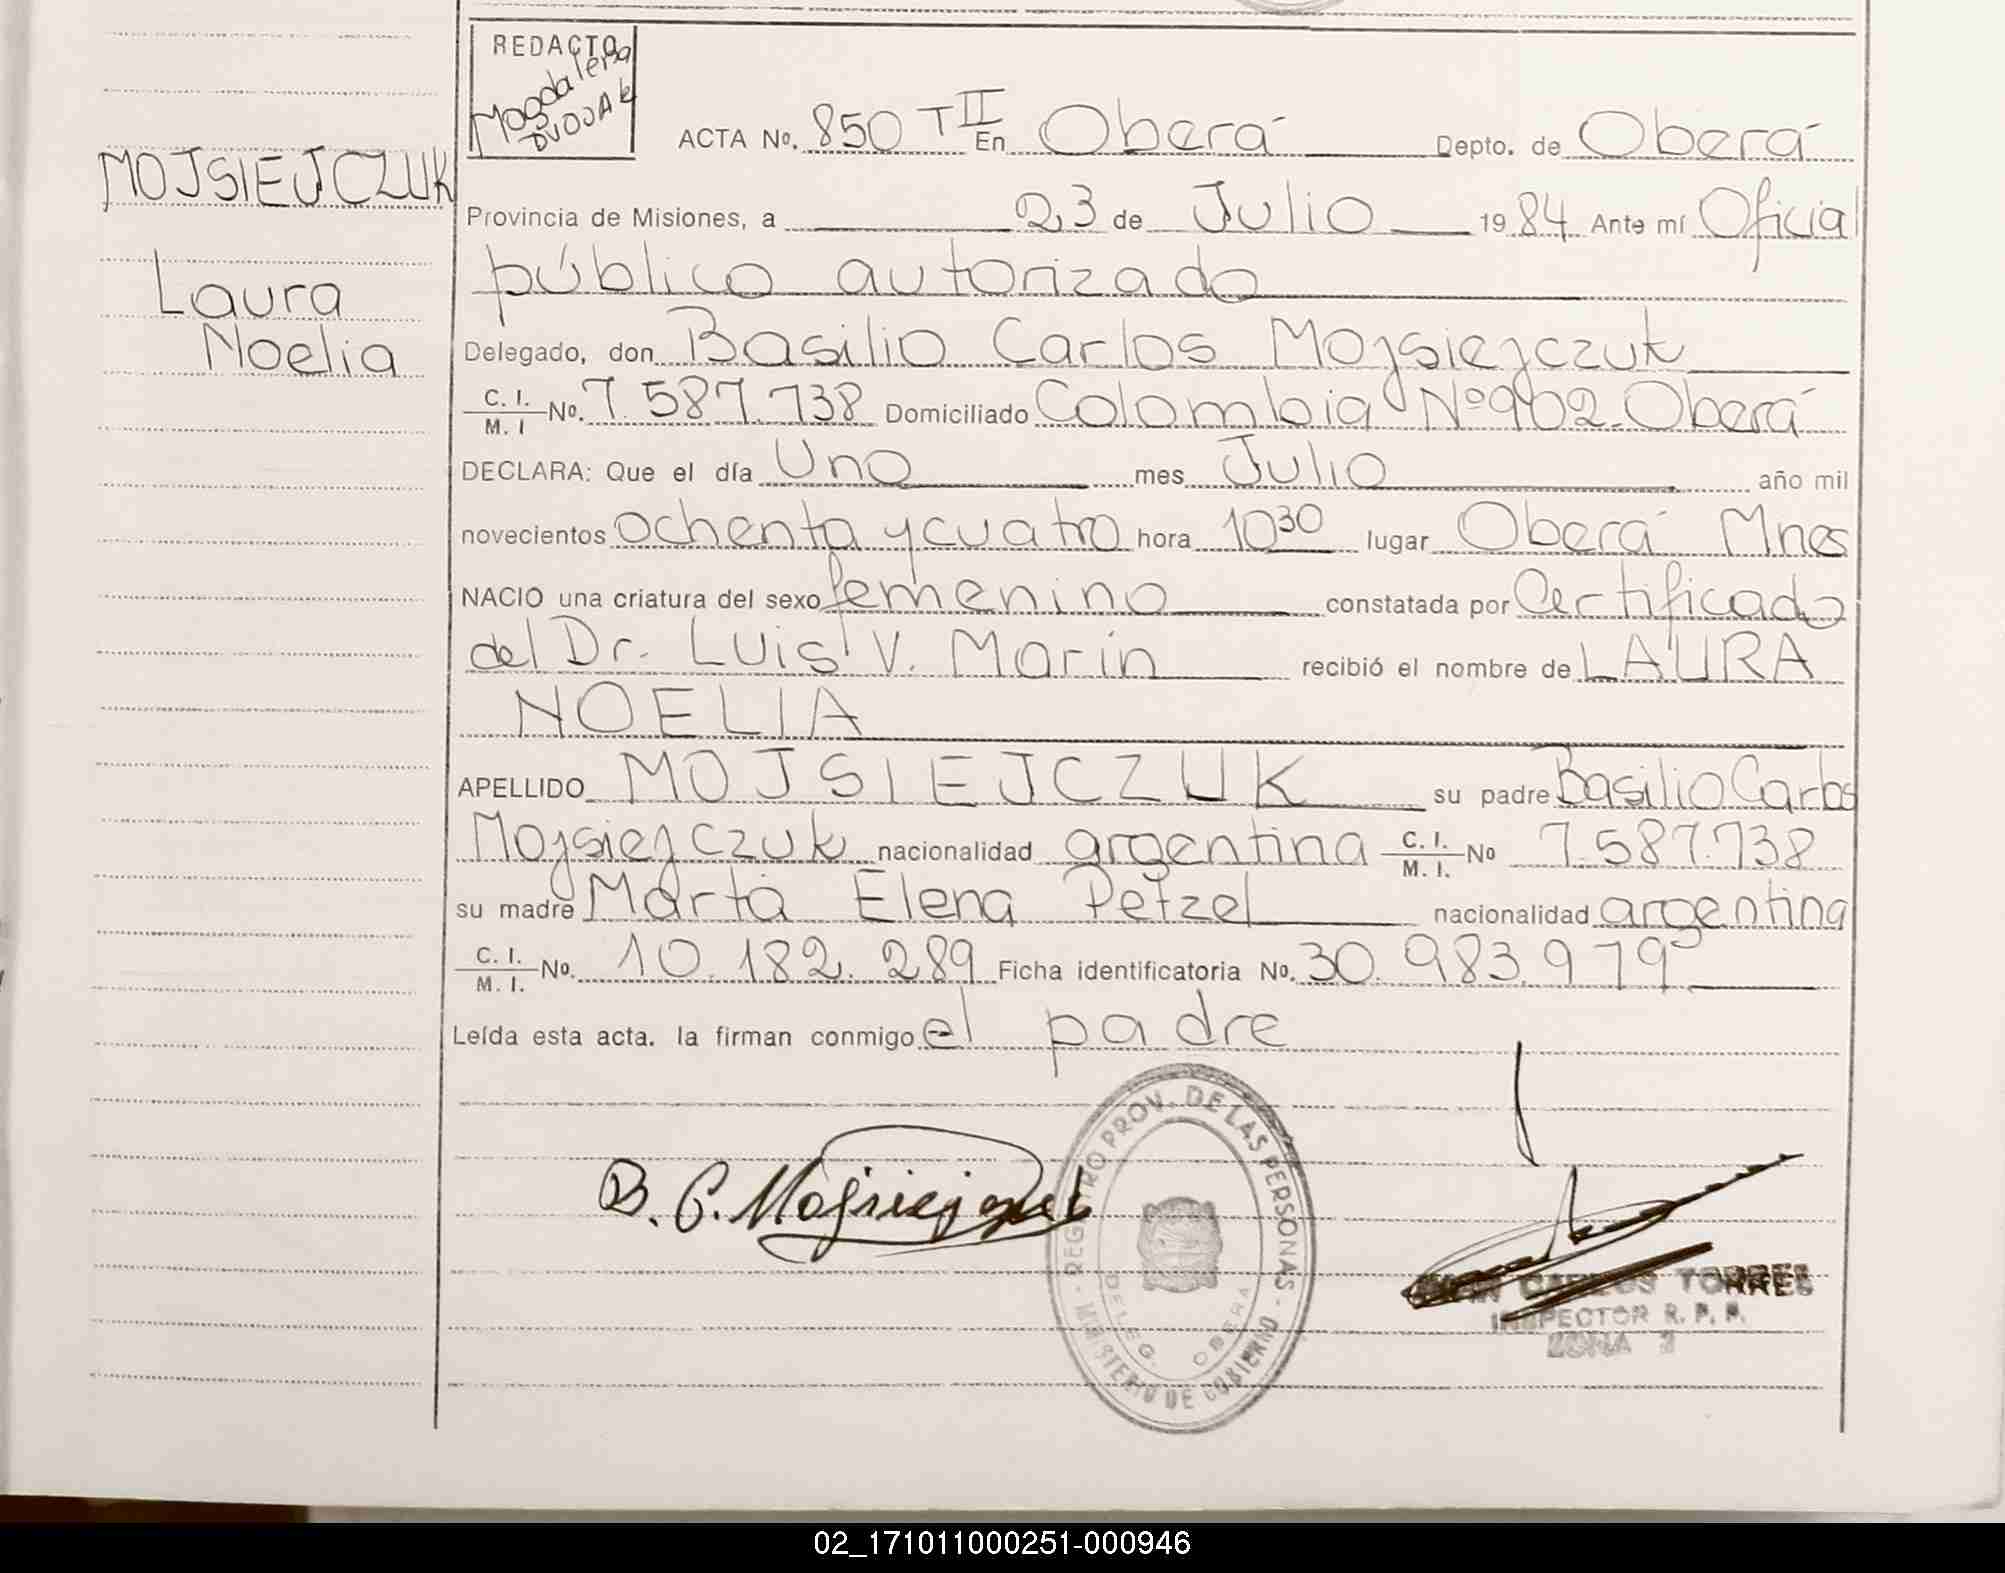 REDACTO
Magdalena
ACTA No. 850 T II En Oberá Depto. de Oberá
MOJSIEJCZUK
Provincia de Misiones, a 23 de Julio 1984 Ante mí Oficial
Laura
público autorizado
Noelia
Delegado, don Basilio Carlos Mojsiejczuk
C. I.
M. I No. 7.587.738 Domiciliado Colombia Nº 902. Oberá
DECLARA: Que el día Uno mes Julio año mil
novecientos ochenta y cuatro hora 10 30 lugar Oberá Mnes
NACIO una criatura del sexo femenino constatada por Certificado
del Dr. Luis V. Marín recibió el nombre de LAURA
NOELIA
APELLIDO MOJSIEJCZUK su padre Basilio Carlos
Mojsiejczuk nacionalidad argentina C. I. M. I. No 7.587.738
su madre Marta Elena Petzel nacionalidad argentina
C. I. M. I. No. 10.182.289 Ficha identificatoria No. 30.983.979
Leída esta acta. la firman conmigo el padre
B. C. Mojsiejczuk
REGISTRO PROV. DE LAS PERSONAS - MINISTERIO DE GOBIERNO -
DELEG. OBERA
CARLOS TORRES
INSPECTOR R. P. P.
ZONA
02_171011000251-000946